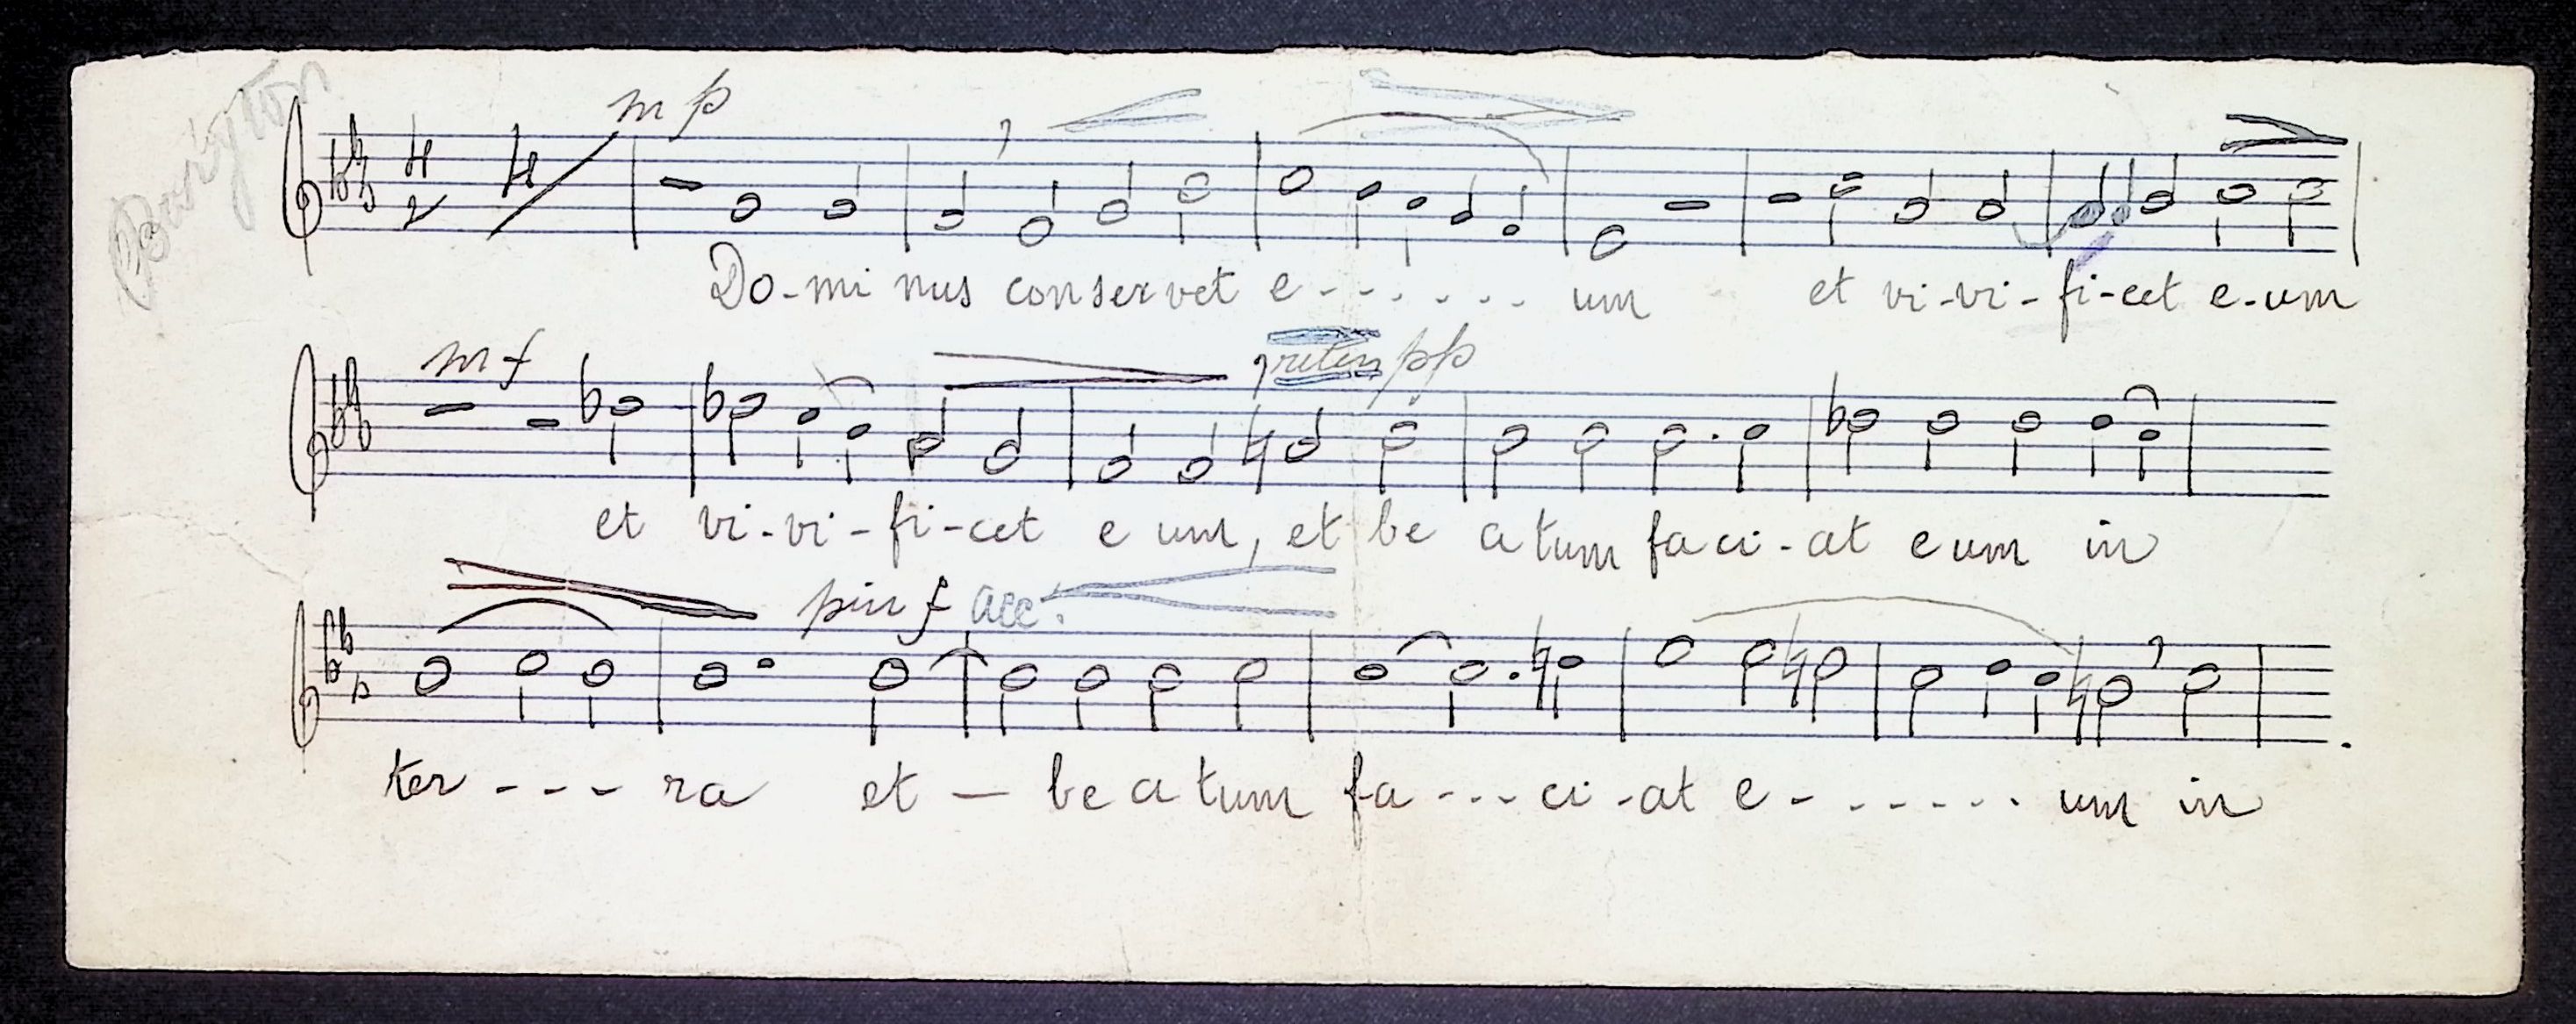 Baryton
mp
Do-mi nus conservet e - - - - - - um et vi-vi-fi-cet e-um
mf , riten pp
et vi-vi-fi-cet e um, et be a tum fa ci-at e um in
piu f acc.
ter - - - ra et — be a tum fa - - - ci-at e - - - - - - um in